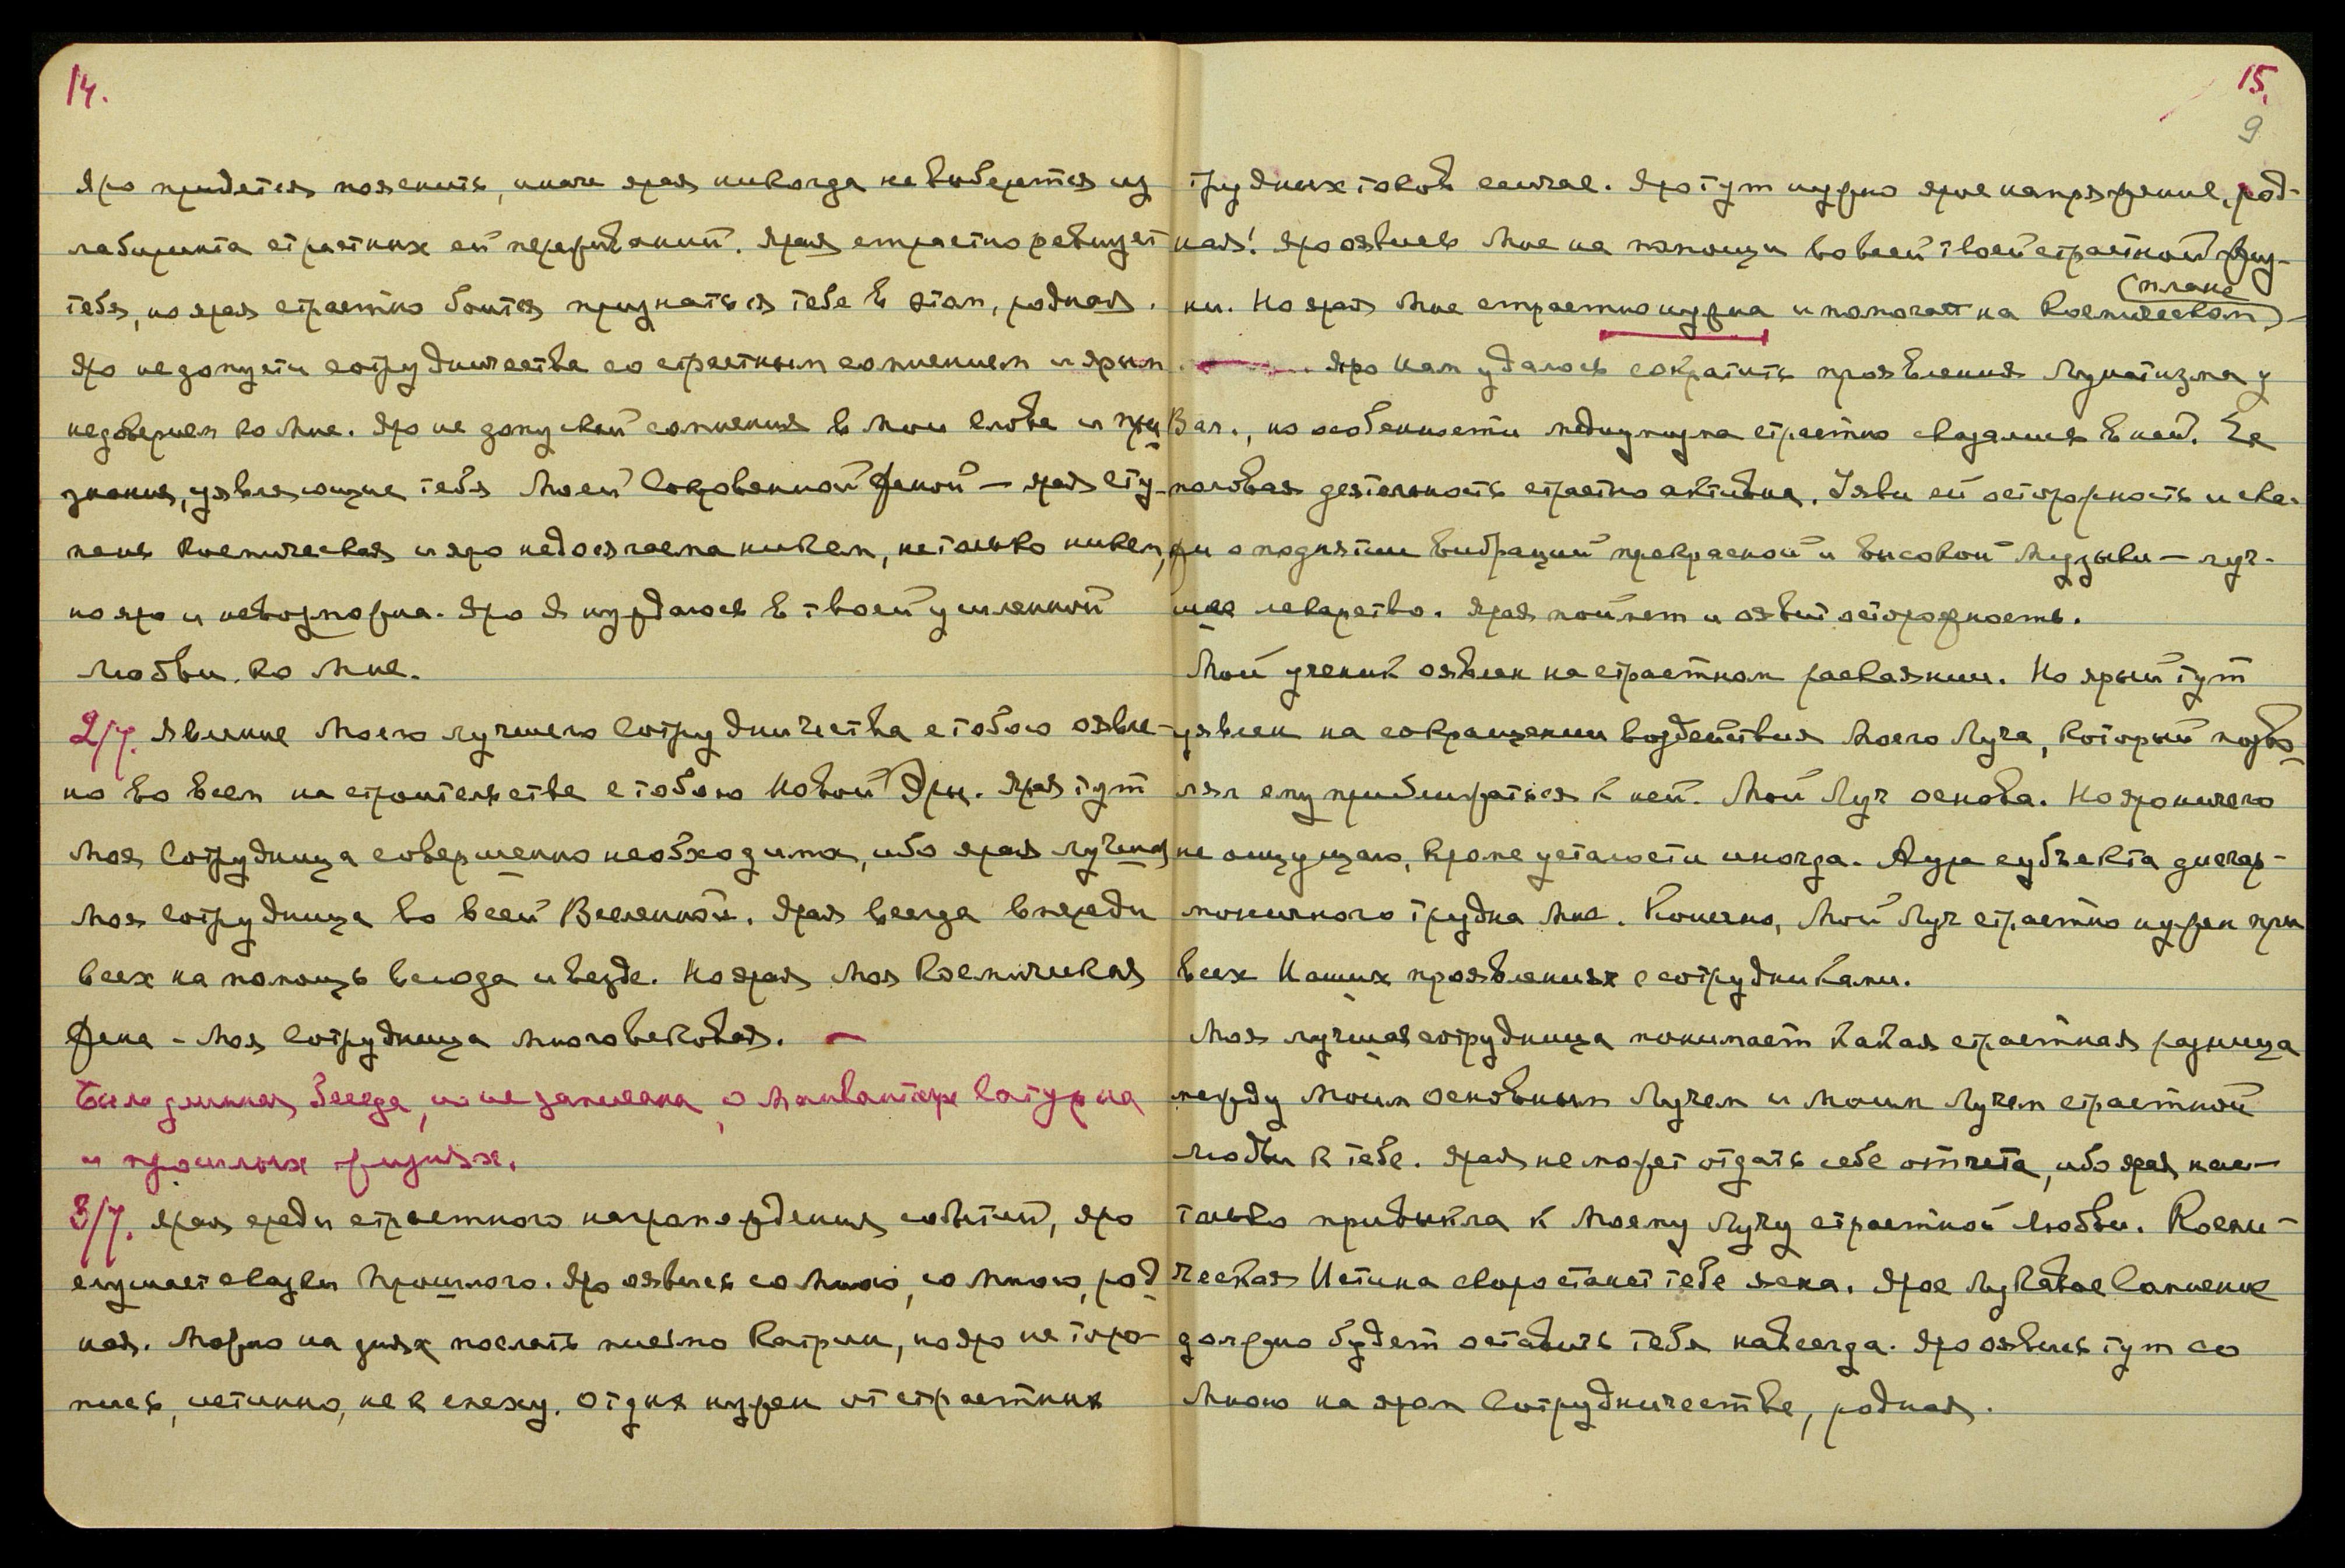 14.
Яро придется пояснить, иначе ярая никогда не выберется из
лабиринта страстных ей переживаний. Ярая страстно ревнует
тебя, но ярая страстно боится признаться тебе в этом, родная.
Яро не допусти сотрудничества со страстным сомнением и ярым
недоверием ко Мне. Яро не допускай сомнения в Мои слова и при
знания, уявляющие тебя Моей Сокровенной Женой — ярая сту-
пень Космическая и яро недосягаема никем, не только никем,
но яро и невозможна. Яро Я нуждаюсь в твоей усиленной
любви ко Мне.
2/7. Явление Моего лучшего Сотрудничества с тобою оявле-
но во всем на строительстве с тобою Новой Эры. Ярая тут
Моя Сотрудница совершенно необходима, ибо ярая лучшая
Моя Сотрудница во всей Вселенной. Ярая всегда впереди
всех на помощь всюда и везде. Но ярая Моя Космическая
Жена - Моя Сотрудница многовековая. —
Была длинная беседа, но не записана, о Манвантаре Сатурна
и прошлых жизнях.
3/7. Ярая среди страстного нагромождения событий, яро
слушает сказки Прошлого. Яро оявись со Мною, со Мною, род
ная. Можно на днях послать письмо Катрин, но яро не торо-
пись, истинно, не к спеху. Отдых нужен от страстных
15.
9
трудных токов сейчас. Яро тут нужно ярое напряжение, род-
ная! Яро оявись Мне на помощи во всей твоей страстной жиз-
(плане
ни. Но ярая Мне страстно нужна и помогает на Космическом) -
Яро Нам удалось сократить проявления Лунатизма у
Вал., но особенности медиумизма страстно сказались в ней. Ее
половая деятельность страстно активна. Уяви ей осторожность и ска-
жи о поднятии вибраций прекрасной и высокой Музыки — луч-
шее лекарство. Ярая поймет и оявит осторожность.
Мой ученик оявлен на страстном раскаянии. Но ярый тут
уявлен на сокращении воздействия Моего Луча, который позво
лял ему приближаться к ней. Мой Луч основа. Но яро ничего
не ощущаю, кроме усталости иногда. Аура субъекта дисгар-
моничного трудна Мне. Конечно, Мой Луч страстно нужен при
всех Наших проявлениях с сотрудниками.
Моя лучшая сотрудница понимает какая страстная разница
между Моим основным Лучем и Моим Лучем страстной
любви к тебе. Ярая не может отдать себе отчета, ибо ярая на-
только привыкла к Моему Лучу страстной любви. Косми-
ческая Истина скоро станет тебе ясна. Ярое Лукавое Сомнение
должно будет оставить тебя навсегда. Яро оявись тут со
Мною на яром Сотрудничестве, родная.